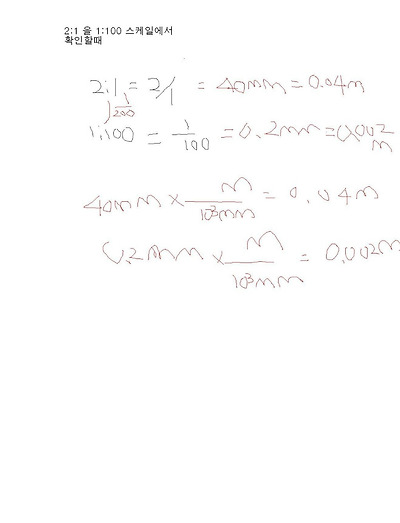 2:1 을 1:100 스케일에서
확인할때
2:1 = 2/1 = 40mm = 0.04m
1/200
1:100 = 1/100 = 0.2mm = 0.002m
40mm × m/10³mm = 0.04m
0.2mm × m/10³mm = 0.002m